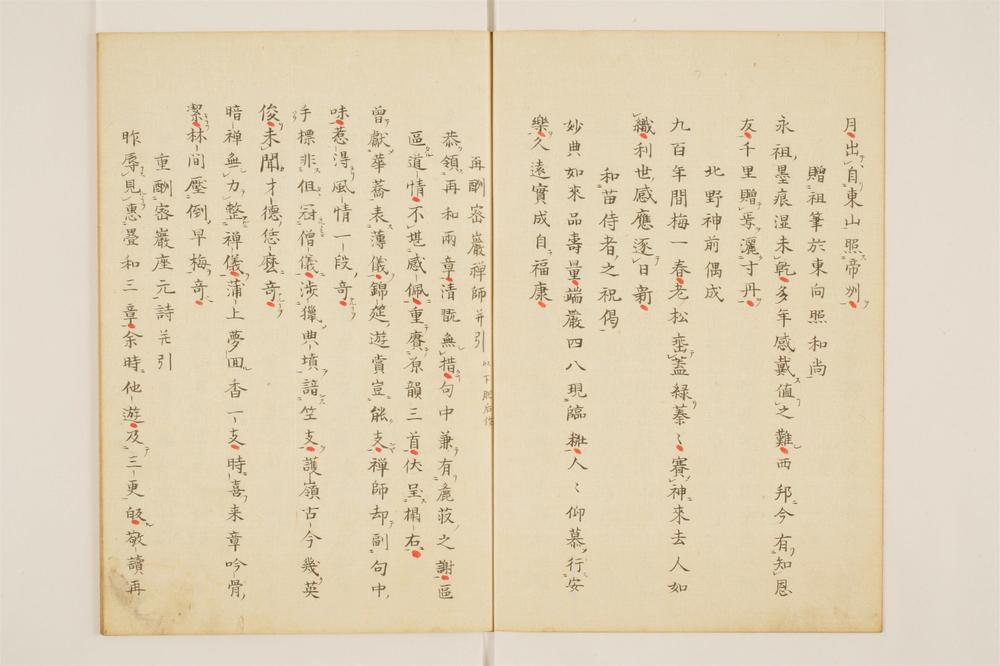 月出自東山照帝州
贈祖筆於東向照和尚
永祖墨痕湿未乾多年感戴値之難西邦今有知恩
友千里贈焉灑寸丹
北野神前偶成
九百年間梅一春老松峦蓋緑蓁〻賽神來去人如
織利世感應逐日新
和苗侍者之祝偈
妙典如來品壽量端嚴四八現臨雝人〻仰慕行安
樂久遠實成自福康
再酬密巖禅師并引
恭領再和兩章清翫無措句中兼有麁菽之謝區
區道情不堪感佩重賡原韻三首伏呈榻右
曽献華蕎表薄儀錦筵遊賞豈能支禅師却副句中
味惹得風情一段竒
手標非但冠僧儀渉獵典墳諳竺支護嶺古今幾英
俊未聞才德恁麽竒
暗禅無力整禅儀蒲上夢回香一支時喜来章吟骨
潔林間壓倒早梅竒
重酬密巖座元詩并引
昨辱見惠疊和三章余時他遊及三更皈敬讀再